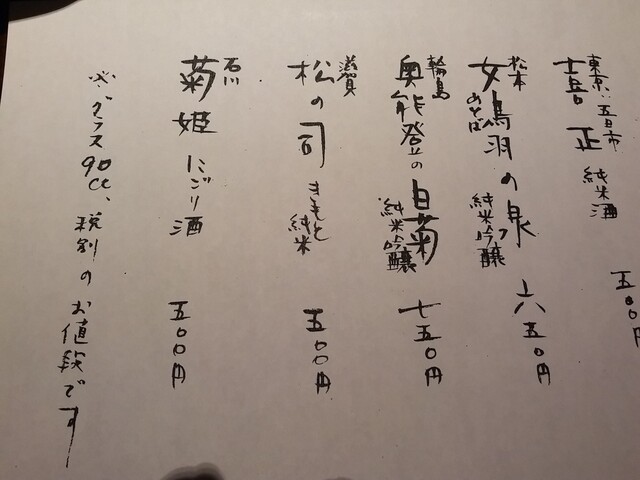 東京・五日市
喜正 純米酒 五〇〇円
松本
女鳥羽の泉 純米吟醸 六五〇円
めとば
輪島
奥能登の白菊 純米吟醸 七五〇円
滋賀
松の司 きもと純米 五〇〇円
石川
菊姫 にごり酒 五〇〇円
※グラス90cc、税別のお値段です